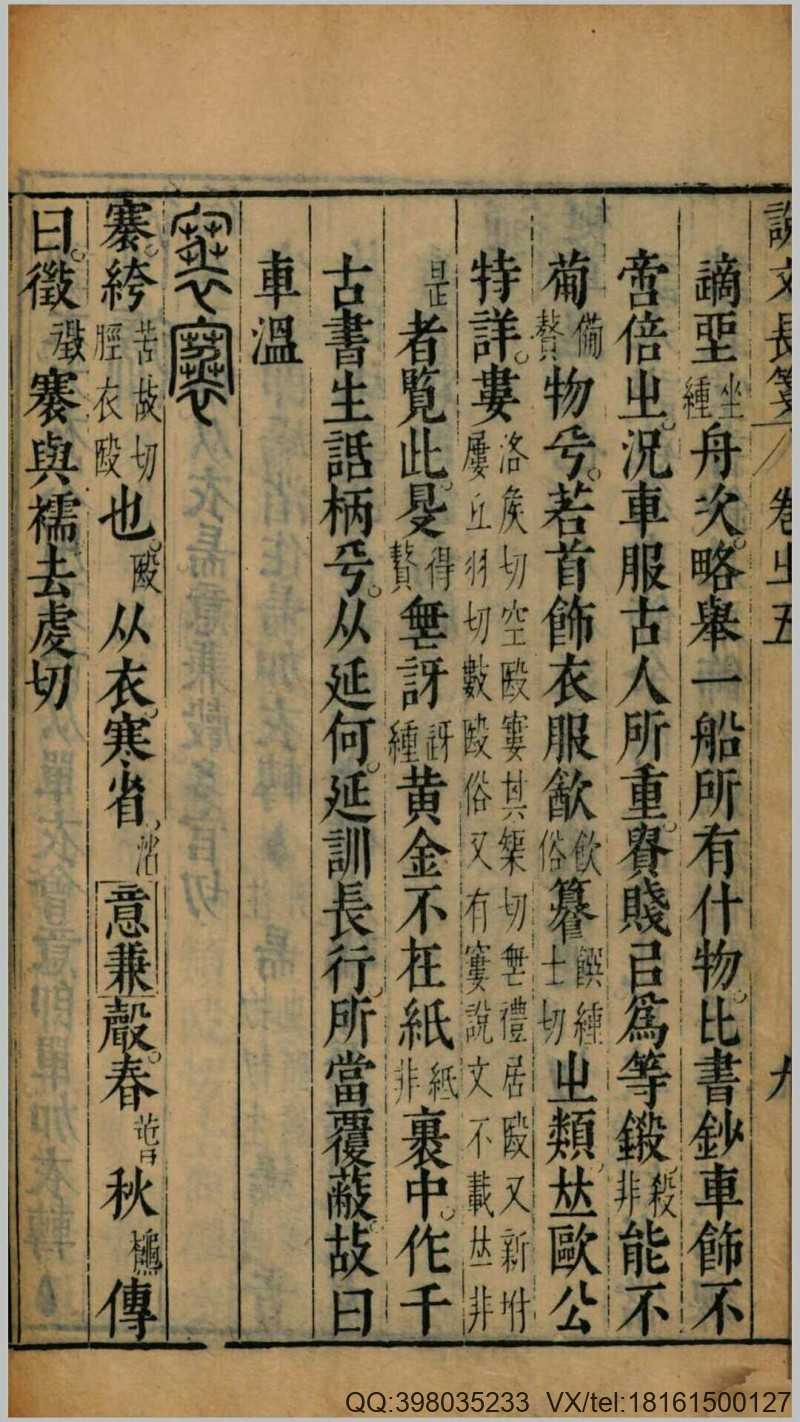 說文長箋 卷㞢五 九
謫𦤎坐種舟次略舉一船所有什物比書鈔車飾不
啻倍㞢況車服古人所重賚賤㠯爲等鍛殺非能不
葡備贅物兮若首飾衣服㱃飮俗籑饌種士切㞢類𠀤歐公
特詳婁洛矦切空毆寠其榘切無禮居毆又新坿屢丘羽切數毆俗又有寠說文不載𠀤非
是者覽此㝵得贅無訝訝種黄金不在紙紙非裹中作千
古書生話柄兮从延何延訓長行所當覆蔽故曰
車溫
褰絝苦故切脛衣毆也毆从衣寒省渻意兼聲春萅秋傳
曰徵徵褰與襦去虔切
QQ:398035233 VX/tel:18161500127